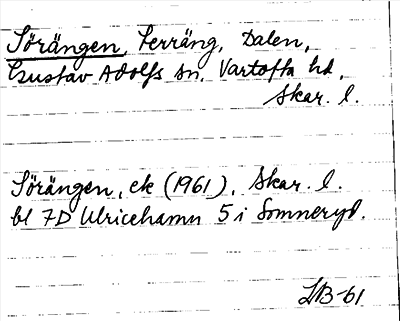 Sörängen, terräng, Dalen,
Gustav Adolfs sn, Vartofta hd,
Skar. l.
Sörängen, ek (1961), Skar. l.
bl 7D Ulricehamn 5 i Somneryd.
LB-61